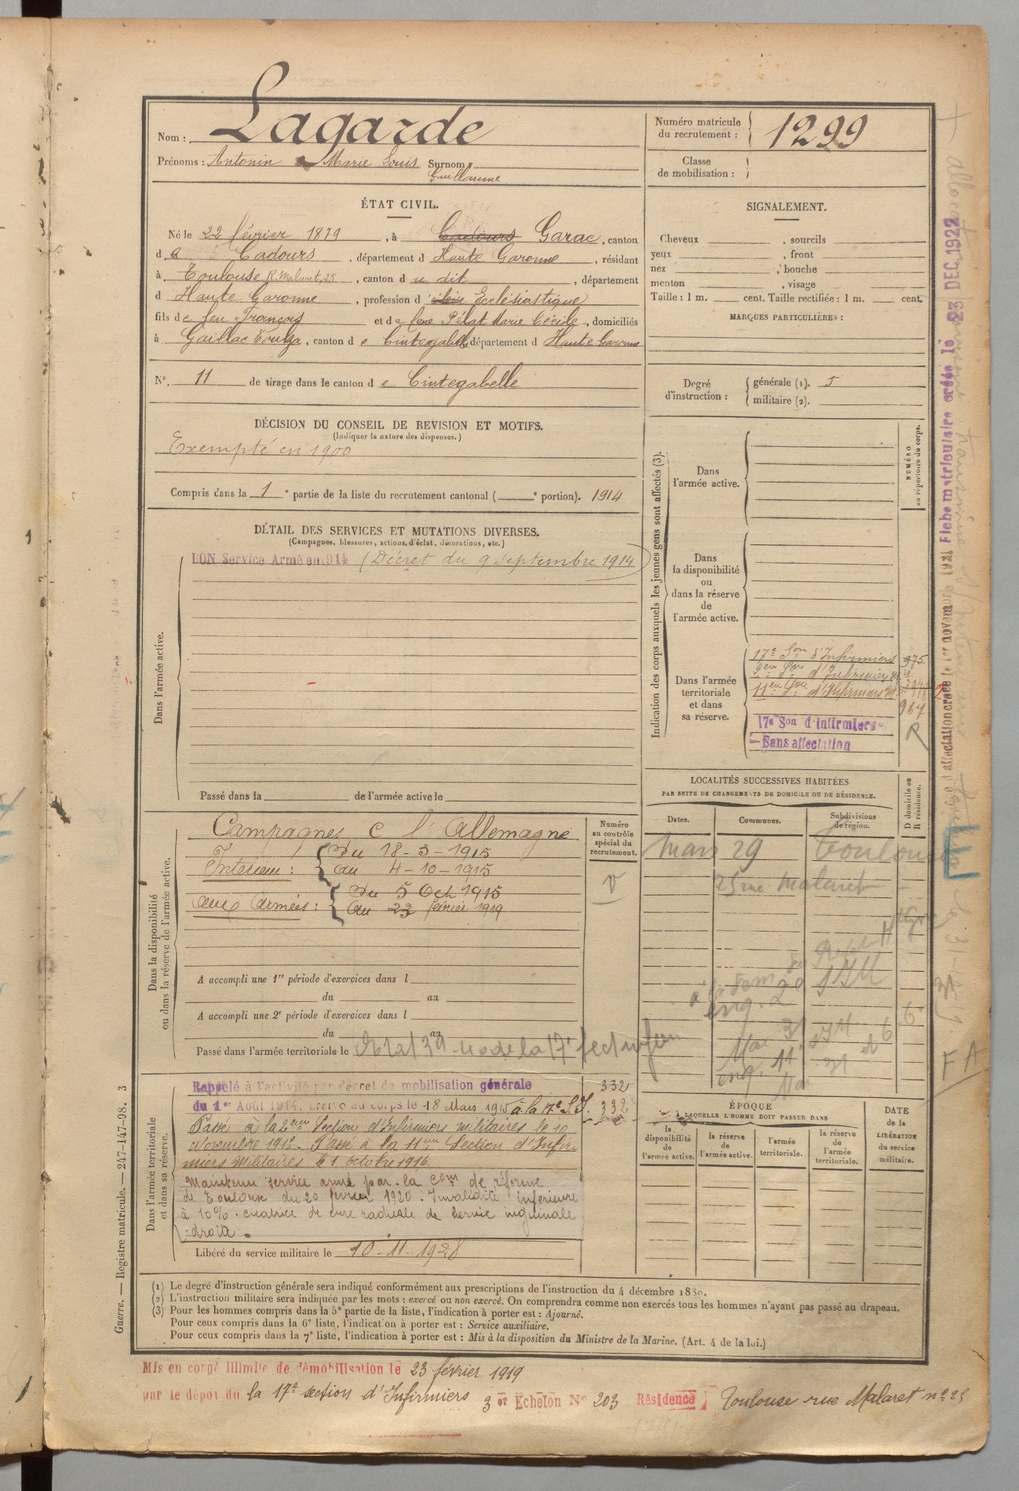 Nom : Lagarde
Prénoms : Antonin Marie Louis Surnom :
Guillaume
Numéro matricule du recrutement : 1299
Classe de mobilisation :
ÉTAT CIVIL.
Né le 22 février 1879, à Cadours Garac, canton
d Cadours, département d Haute Garonne, résidant
à Toulouse R. Malaret, 25, canton d u dit, département
d Haute Garonne, profession d Ecclésiastique
fils de feu François et de feue Pélat Marie Cécile, domiciliés
à Gaillac Toulza, canton de Cintegabelle, département d Haute Garonne
N° 11 de tirage dans le canton de Cintegabelle
SIGNALEMENT.
Cheveux , sourcils
yeux , front
nez , bouche
menton , visage
Taille : 1 m. cent. Taille rectifiée : 1 m. cent.
MARQUES PARTICULIÈRES :
Degré d'instruction : générale (1). 5
militaire (2).
DÉCISION DU CONSEIL DE REVISION ET MOTIFS.
(Indiquer la nature des dispenses.)
Exempté en 1900
Compris dans la 1e partie de la liste du recrutement cantonal ( e portion). 1914
DÉTAIL DES SERVICES ET MUTATIONS DIVERSES.
(Campagnes, blessures, actions d'éclat, décorations, etc.)
BON Service Armé en 1914 (Décret du 9 septembre 1914)
Dans l'armée active.
Passé dans la de l'armée active le
Indication des corps auxquels les jeunes gens sont affectés (3).
NUMÉRO au répertoire du corps.
Dans l'armée active.
Dans la disponibilité ou dans la réserve de l'armée active.
Dans l'armée territoriale et dans sa réserve.
17e Son d'Infirmiers 975
d'Infirmiers
11eme Son d'Infirmiers
964
17e Son d'Infirmiers R
Sans affectation
LOCALITÉS SUCCESSIVES HABITÉES
PAR SUITE DE CHANGEMENTS DE DOMICILE OU DE RÉSIDENCE.
Dates. Communes. Subdivisions de région. D domicile ou R résidence.
Mars 29 Toulouse
25 rue Malaret
Dans la disponibilité ou dans la réserve de l'armée active.
Numéro au contrôle spécial du recrutement.
Campagnes c l'Allemagne
Intérieur : Du 18-3-1915
au 4-10-1915
aux Armées : Du 5 Oct 1915
au 23 février 1919
A accompli une 1re période d'exercices dans l
du au
A accompli une 2e période d'exercices dans l
du au
Passé dans l'armée territoriale le
Dans l'armée territoriale et dans sa réserve.
Rappelé à l'activité par décret de mobilisation générale 332
du 1er Août 1914, arrivé au corps le 18 Mars 1915 à la 17e S.I. 332
Passé à la 2eme Section d'Infirmiers militaires le 10
Novembre 1915. Passé à la 11eme Section d'Infir-
miers militaires le 1 octobre 1916.
Maintenu service armé par la Com de réforme
de Toulouse du 20 février 1920. Invalidité inférieure
à 10% cicatrice de cure radicale de hernie inguinale
droite.
Libéré du service militaire le 10-11-1928
ÉPOQUE
À LAQUELLE L'HOMME DOIT PASSER DANS
la disponibilité de l'armée active. la réserve de l'armée active. l'armée territoriale. la réserve de l'armée territoriale.
DATE de la LIBÉRATION du service militaire.
(1) Le degré d'instruction générale sera indiqué conformément aux prescriptions de l'instruction du 4 décembre 1889.
(2) L'instruction militaire sera indiquée par les mots : exercé ou non exercé. On comprendra comme non exercés tous les hommes n'ayant pas passé au drapeau.
(3) Pour les hommes compris dans la 5e partie de la liste, l'indication à porter est : Ajourné.
Pour ceux compris dans la 6e liste, l'indication à porter est : Service auxiliaire.
Pour ceux compris dans la 7e liste, l'indication à porter est : Mis à la disposition du Ministre de la Marine. (Art. 4 de la loi.)
Guerre. — Registre matricule. — 247-147-98. 3
Mis en congé illimité de démobilisation le 23 février 1919
par le dépôt du la 17e section d'Infirmiers 3 er Echelon N° 203 Résidence Toulouse rue Malaret n° 25
Fiche matriculaire créée le 23 DEC 1922
F A